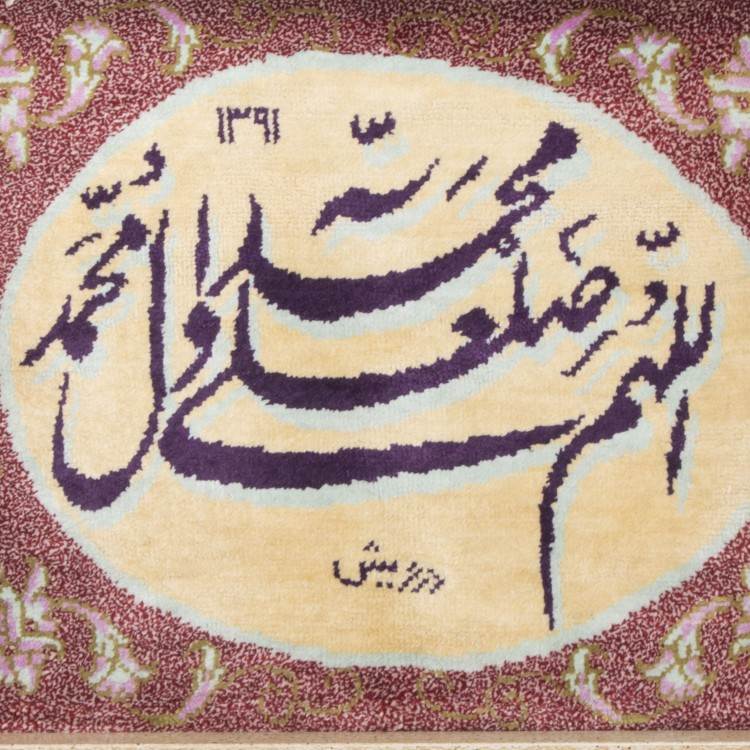 ۱۳۹۱
اللهم صل علی محمد و آل محمد
درویش